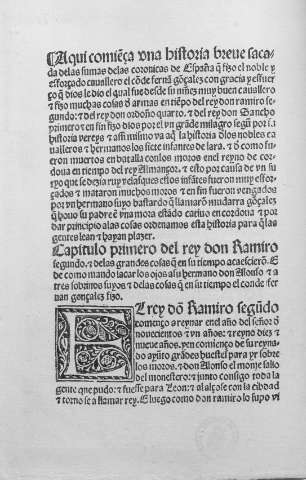 Aqui comiẽça vna historia breue saca
da delas sumas delas coronicas de España q̃ fizo el noble y
esforçado cauallero el cõde fernã gõçales con gracia y esfuer
ço q̃ dios le dio el qual fue desde su niñez muy buen cauallero
⁊ fizo muchas cosas ð armas en tiẽpo del rey don ramiro se-
gundo: ⁊ del rey don ordoño quarto. ⁊ del rey don Sancho
primero ⁊ en fin fizo dios por el vn grãde milagro segũ por la
historia vereys ⁊ assi mismo va aq̃ la historia ðlos nobles ca
ualleros ⁊ hermanos los siete infantes de lara. ⁊ ð como fue
ron muertos en batalla con los moros enel reyno de cor-
doua en tiempo del rey Almançor. ⁊ esto por causa de vn su
tyo que se dezia ruy velasquez ⁊ los ifãtes fueron muy esfor
çados ⁊ mataron muchos moros ⁊ en fin fueron vengados
por vn hermano suyo bastardo q̃ llamarõ mudarra gõçalez
q̃ houo su padre ẽ vna mora estãdo catiuo en cordoua ⁊ por
dar principio alas cosas ordenamos esta historia para q̃ las
gentes lean ⁊ hayan plazer.
Capitulo primero del rey don Ramiro
segundo. ⁊ delas grandes cosas q̃ en su tiempo acaescierõ. E
de como mando sacar los ojos a su hermano don Alonso ⁊ a
tres sobrinos suyos ⁊ delas cosas q̃ en su tiempo el conde fer
nan gonçales fizo.
El rey dõ Ramiro segũdo
començo a reynar enel año del señor ð
nouecientos ⁊ vn años: ⁊ reyno diez ⁊
nueue años. y en comienço de su reyna
do ayũto grãdes huestes para yr sobre
los moros. ⁊ don Alonso el monje salio
del monesterio: ⁊ junto consigo toda la
gente que pudo: ⁊ fuesse para Leon: ⁊ alçose con la cibdad
⁊ torno se a llamar rey. E luego como don ramiro lo supo vi